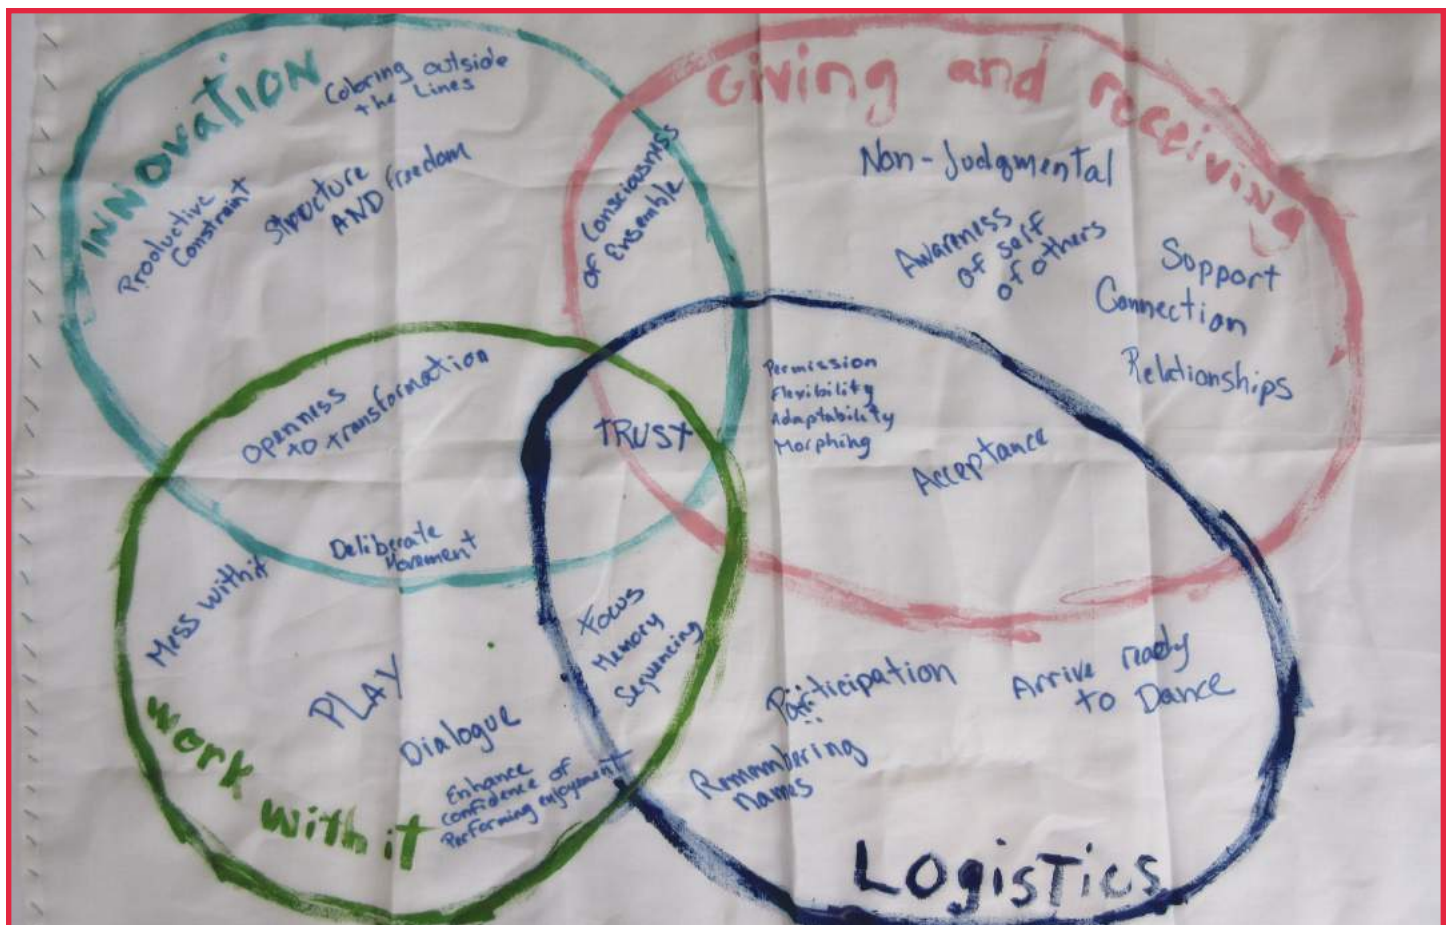 INNOvaTION
Coloring outside
the Lines
Productive
Constraint
Structure
AND freedom
Consciousness
of Ensemble
Giving and receiving
Non-Judgmental
Awareness
of self
of others
Support
Connection
Relationships
Openness
to transformation
tRUSt
Permission
Flexibility
Adaptability
Morphing
Acceptance
Deliberate
Movement
Mess with it
Focus
Memory
Sequencing
PLAY
Dialogue
Enhance
confidence of
Performing enjoyment
work with it
Participation
Arrive ready
to Dance
Remembering
names
LOgisTics